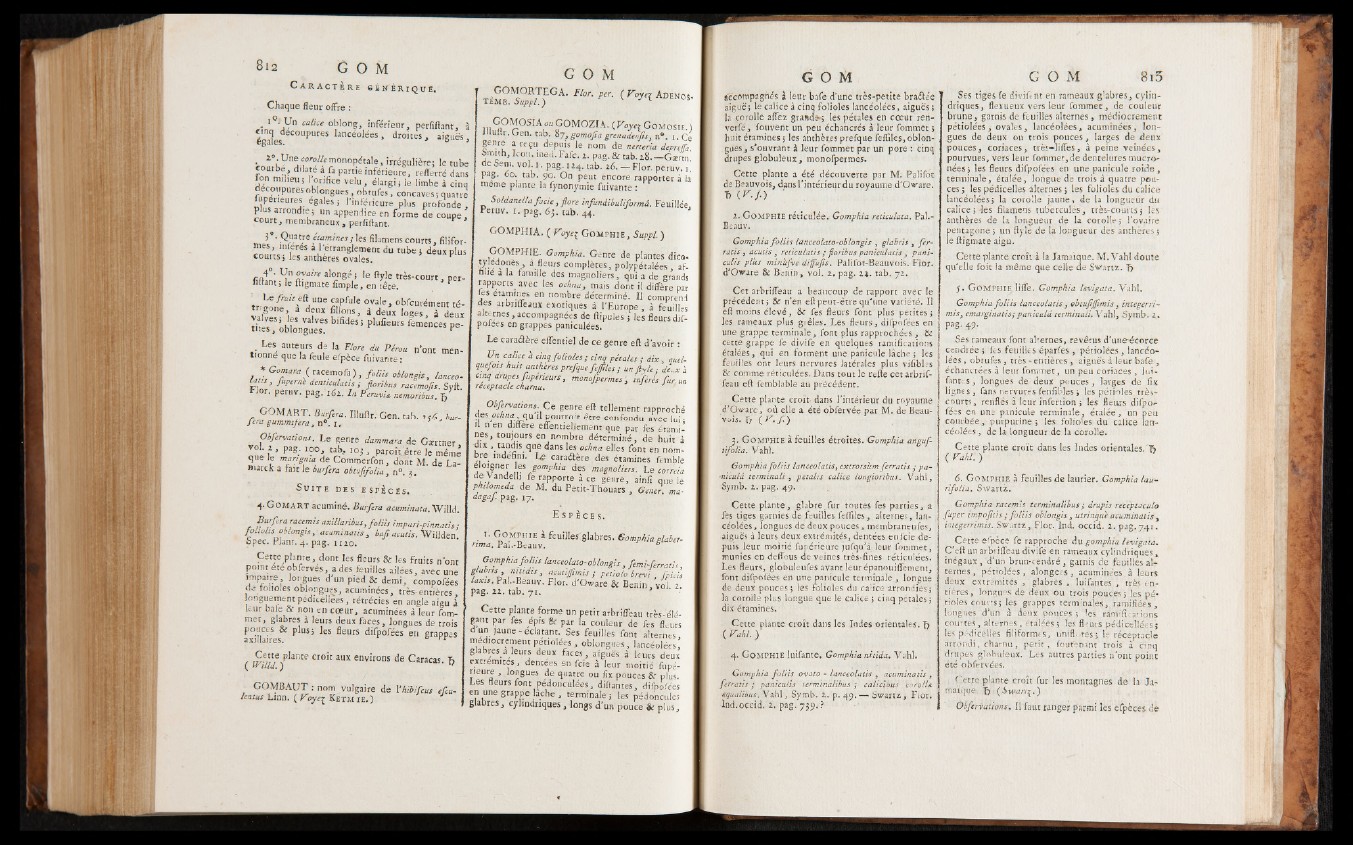 812 G O M
CARACTÈRE GÉNÉRIQUE.
Chaque fleur offre :
1°. Un calice oblong, inférieur, perſiſtant, à
cinq découpures lancéolées, droites, aiguës,
égales.
2°. Une corolle monopétale, irrégulière; le tube
courbe, dilaté à ſa partie inférieure, reſſerré dans
ſon milieu; l'orifice velu, élargi; le limbe à cinq
découpures oblongues, obtuſes, concaves; quatre
ſupérieures égales; l'inférieure plus profonde,
plus arrondie; un appendice en forme de coupe,
court, membraneux, perſiſtant.
3°. Quatre étamines; les filamens courts, filifor-
mes, inférés à l'étranglement du tube; deux plus
courts; les anthères ovales.
4°. Un ovaire alongé; le ſtyle très-court, per-
ſiſtant; le ſtigmate ſimple, en tête.
Le fruit eſt une capſule ovale, obſcurément té-
trigone, à deux ſillons, à deux loges, à deux
valves; les valves bifides; pluſieurs ſemences pe-
tites, oblongues.
Les auteurs de la Flore du Pérou n'ont men-
tionné que la ſeule eſpèce ſuivante :
* Gomara (racemoſa), foliis oblongis, lanceo-
latis, ſupernè denticulatis ; floribus racemoſis. Syſt.
Flor. peruv. pag. 162. In Peruviæ nemoribus. ♄
GOMART. Burſera. Illuſtr. Gen. tab. 256, bur-
ſera gummifera, n°. 1.
Obſervations. Le genre dammara de Gærtner,
vol. 2, pag. 100, tab. 103, paroît être le même
que le marignia de Commerſon, dont M. de La-
marck a fait le burſera obtuſifolia, n°. 3.
SUITE DES ESPÈCES.
4. GOMART acuminé. Burſera acuminata. Willd.
Burſera racemis axillaribus, foliis impari-pinnatis;
foliolis oblongis, acuminatis, baſi acutis. Willden.
Spec. Plant. 4. pag. 1120.
Cette plante, dont les fleurs & les fruits n'ont
point été obſervés, a des feuilles ailées, avec une
impaire, longues d'un pied & demi, compoſées
de folioles oblongues, acuminées, très-entières,
longuement pédicellées, rétrécies en angle aigu à
leur baſe & non en cœur, acuminées à leur ſom-
met, glabres à leurs deux faces, longues de trois
pouces & plus; les fleurs diſpoſées en grappes
axillaires.
Cette plante croît aux environs de Caracas. ♄
( Willd. )
GOMBAUT : nom vulgaire de l'hibiſcus eſcu-
lentus Linn. ( Voyez KETMIE.)
G O M
GOMORTEGA. Flor. per. ( Voyez ADENOS-
TÈME. Suppl. )
GOMOSIA ou GOMOZIA. (Voyez GOMOSIE.)
Illuſtr. Gen. tab. 87, gomoſia grenadenſis, n°. 1. Ce
genre a reçu depuis le nom de nerteria depreſſa.
Smith, Icon. ined. Faſc. 2. pag. & tab. 28. — Gærtn.
de Sem. vol. 1. pag. 124. tab. 26. — Flor. peruv. 1.
pag. 60. tab. 90. On peut encore rapporter à la
même plante la ſynonymie ſuivante :
Soldanella facie, flore infundibuliformâ. Feuillée,
Peruv. 1. pag. 63. tab. 44.
GOMPHIA. ( Voyez GOMPHIE, Suppl. )
GOMPHIE. Gomphia. Genre de plantes dico-
tylédones, à fleurs complètes, polypétalées, af-
filié à la famille des magnoliers, qui a de grands
rapports avec les ochna, mais dont il diffère par
ſes étamines en nombre déterminé. Il comprend
des arbriſſeaux exotiques à l'Europe, à feuilles
alternes, accompagnées de ſtipules; les fleurs diſ-
poſées en grappes paniculées.
Le caractère eſſentiel de ce genre eſt d'avoir :
Un calice à cinq folioles ; cinq pétales ; dix, quel-
quefois huit anthères preſque ſeſſiles ; un ſtyle; deux à
cinq drupes ſupérieurs, monoſpermes, inférés ſur un
réceptacle charnu.
Obſervations. Ce genre eſt tellement rapproché
des ochna, qu'il pourroit être confondu avec lui;
il n'en diffère eſſentiellement que par ſes étami-
nes, toujours en nombre déterminé, de huit à
dix, tandis que dans les ochna elles ſont en nom-
bre indéfini. Le caractère des étamines ſemble
éloigner les gomphia des magnoliers. Le correia
de Vandelli ſe rapporte à ce genre, ainſi que le
philomeda de M. du Petit-Thouars, Gener. ma-
dagaſ. pag. 17.
ESPÈCES.
1. GOMPHIE à feuilles glabres. Gomphia glaber-
rima. Pal.-Beauv.
Gomphia foliis lanceolato-oblongis, ſemi-ferratis,
glabris, nitidis, acutiſſimis ; petiolo brevi, ſpicis
laxis. Pal.-Beauv. Flor. d'Oware & Benin, vol. 2.
pag. 22. tab. 71.
Cette plante forme un petit arbriſſeau très-élé-
gant par ſes épis & par la couleur de ſes fleurs
d'un jaune-éclatant. Ses feuilles ſont alternes,
médiocrement pétiolées, oblongues, lancéolées,
glabres à leurs deux faces, aiguës à leurs deux
extrémités, dentées en ſcie à leur moitié ſupé-
rieure, longues de quatre ou ſix pouces & plus.
Les fleurs ſont pédonculées, diſtantes, diſpoſées
en une grappe lâche, terminale; les pédoncules
glabres, cylindriques, longs d'un pouce & plus,
G O M
accompagnés à leur baſe d'une très-petite bractée
aiguë; le calice à cinq folioles lancéolées, aiguës;
la corolle aſſez grande; les pétales en cœur ren-
verſé, ſouvent un peu échancrés à leur ſommet;
huit étamines; les anthères preſque ſeſſiles, oblon-
gues, s'ouvrant à leur ſommet par un pore : cinq
drupes globuleux, monoſpermes.
Cette plante a été découverte par M. Paliſot
de Beauvois, dans l'intérieur du royaume d'Oware.
♄ (V.ſ.)
2. GOMPHIE réticulée. Gomphia reticulata. Pal.-
Beauv.
Gomphia foliis lanceolato-oblongis, glabris, ſer-
ratis, acutis, reticulatis ; floribus paniculatis, pani-
culis plus minùſve diffuſis. Paliſot-Beauvois. Flor.
d'Oware & Benin, vol. 2. pag. 22. tab. 72.
Cet arbriſſeau a beaucoup de rapport avec le
précédent; & n'en eſt peut-être qu'une variété. Il
eſt moins élevé, & ſes fleurs ſont plus petites;
les rameaux plus grêles. Les fleurs, diſpoſées en
une grappe terminale, ſont plus rapprochées, &
cette grappe ſe diviſe en quelques ramifications
étalées, qui en forment une panicule lâche; les
feuilles ont leurs nervures latérales plus viſibles
& comme réticulées. Dans tout le reſte cet arbriſ-
ſeau eſt ſemblable au précédent.
Cette plante croît dans l'intérieur du royaume
d'Oware, où elle a été obſervée par M. de Beau-
vois. ♄ ( V. ſ.)
3. GOMPHIE à feuilles étroites. Gomphia anguſ-
tifolia. Vahl.
Gomphia foliis lanceolatis, extrorsùm ferratis ; pa-
niculâ terminali, petalis calice longioribus. Vahl,
Symb. 2. pag. 49.
Cette plante, glabre ſur toutes ſes parties, a
ſes tiges garnies de feuilles ſeſſiles, alternes, lan-
céolées, longues de deux pouces, membraneuſes,
aiguës à leurs deux extrémités, dentées en ſcie de-
puis leur moitié ſupérieure juſqu'à leur ſommet,
munies en deſſous de veines très-fines réticulées.
Les fleurs, globuleuſes avant leur épanouiſſement,
ſont diſpoſées en une panicule terminale, longue
de deux pouces; les folioles du calice arrondies;
la corolle plus longue que le calice; cinq petales;
dix étamines.
Cette plante croît dans les Indes orientales. ♄
( Vahl. )
4. GOMPHIE luiſante. Gomphia nitida. Vahl.
Gomphia foliis ovato-lanceolatis, acuminatis,
ferratis ; paniculis terminalibus ; calicibus corollæ
æqualibus. Vahl, Symb. 2. p. 49. — Swartz, Flor.
Ind. occid. 2. pag. 739. ?
G O M 813
Ses tiges ſe diviſent en rameaux glabres, cylin-
driques, flexueux vers leur ſommet, de couleur
brune, garnis de feuilles alternes, médiocrement
pétiolées, ovales, lancéolées, acuminées, lon-
gues de deux ou trois pouces, larges de deux
pouces, coriaces, très-liſſes, à peine veinées,
pourvues, vers leur ſommet, de dentelures mucro-
nées; les fleurs diſpoſées en une panicule roide,
terminale, étalée, longue de trois à quatre pou-
ces; les pédicelles alternes; les folioles du calice
lancéolées; la corolle jaune, de la longueur du
calice; les filamens tuberculés, très-courts; les
anthères de la longueur de la corolle; l'ovaire
pentagone; un ſtyle de la longueur des anthères;
le ſtigmate aigu.
Cette plante croît à la Jamaïque. M. Vahl doute
qu'elle ſoit la même que celle de Swartz. ♄
5. GOMPHIE liſſe. Gomphia levigata. Vahl.
Gomphia foliis lanceolatis, obtuſiſſimis, integerri-
mis, emarginatis; paniculâ terminali. Vahl, Symb. 2.
pag. 49.
Ses rameaux ſont alternes, revêtus d'une écorce
cendrée; les feuilles éparſes, pétiolées, lancéo-
lées, obtuſes, très-entières, aiguës à leur baſe,
échancrées à leur ſommet, un peu coriaces, lui-
ſantes, longues de deux pouces, larges de ſix
lignes, ſans nervures ſenſibles; les pétioles très-
courts, renflés à leur inſertion; les fleurs diſpo-
ſées en une panicule terminale, étalée, un peu
courbée, purpurine; les folioles du calice lan-
céolées, de la longueur de la corolle.
Cette plante croît dans les Indes orientales. ♄
( Vahl. )
6. GOMPHIE à feuilles de laurier. Gomphia lau-
rifolia. Swartz.
Gomphia racemis terminalibus; drupis receptaculo
ſuper impoſitis ; foliis oblongis, utrinquè acuminatis,
integerrimis. Swartz, Flor. Ind. occid. 2. pag. 741.
Cette eſpèce ſe rapproche du gomphia levigata.
C'eſt un arbriſſeau diviſé en rameaux cylindriques,
inégaux, d'un brun-cendré, garnis de feuilles al-
ternes, pétiolées, alongées, acuminées à leurs
deux extrémités, glabres, luiſantes, très-en-
tières, longues de deux ou trois pouces; les pé-
tioles courts; les grappes terminales, ramifiées,
longues d'un à deux pouces; les ramifications
courtes, alternes, étalées; les fleurs pédicellées;
les pédicelles filiformes, uniflores; le réceptacle
arrondi, charnu, petit, ſoutenant trois à cinq
drupes globuleux. Les autres parties n'ont point
été obſervées.
Cette plante croît ſur les montagnes de la Ja-
maïque. ♄ (Swartz.)
Obſervations. Il faut ranger parmi les eſpèces de